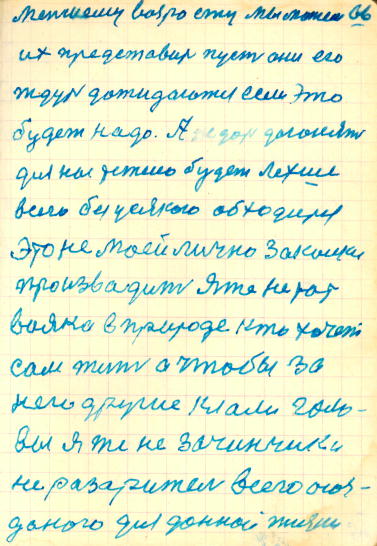 меншему вобро сту мы можем 66
их представил пусть они его
ждут дожидаются если это
будет надо. А догонять
для нас тяжело будет лехше
всего без усякого обходится
Это не моей лично закалки
произвадить я же не тот
вояка в природе кто хочет
сам жить а чтобы за
него другие клали голо-
вы я же не зачинчик и
не разаритель всего
даного для данной жизни